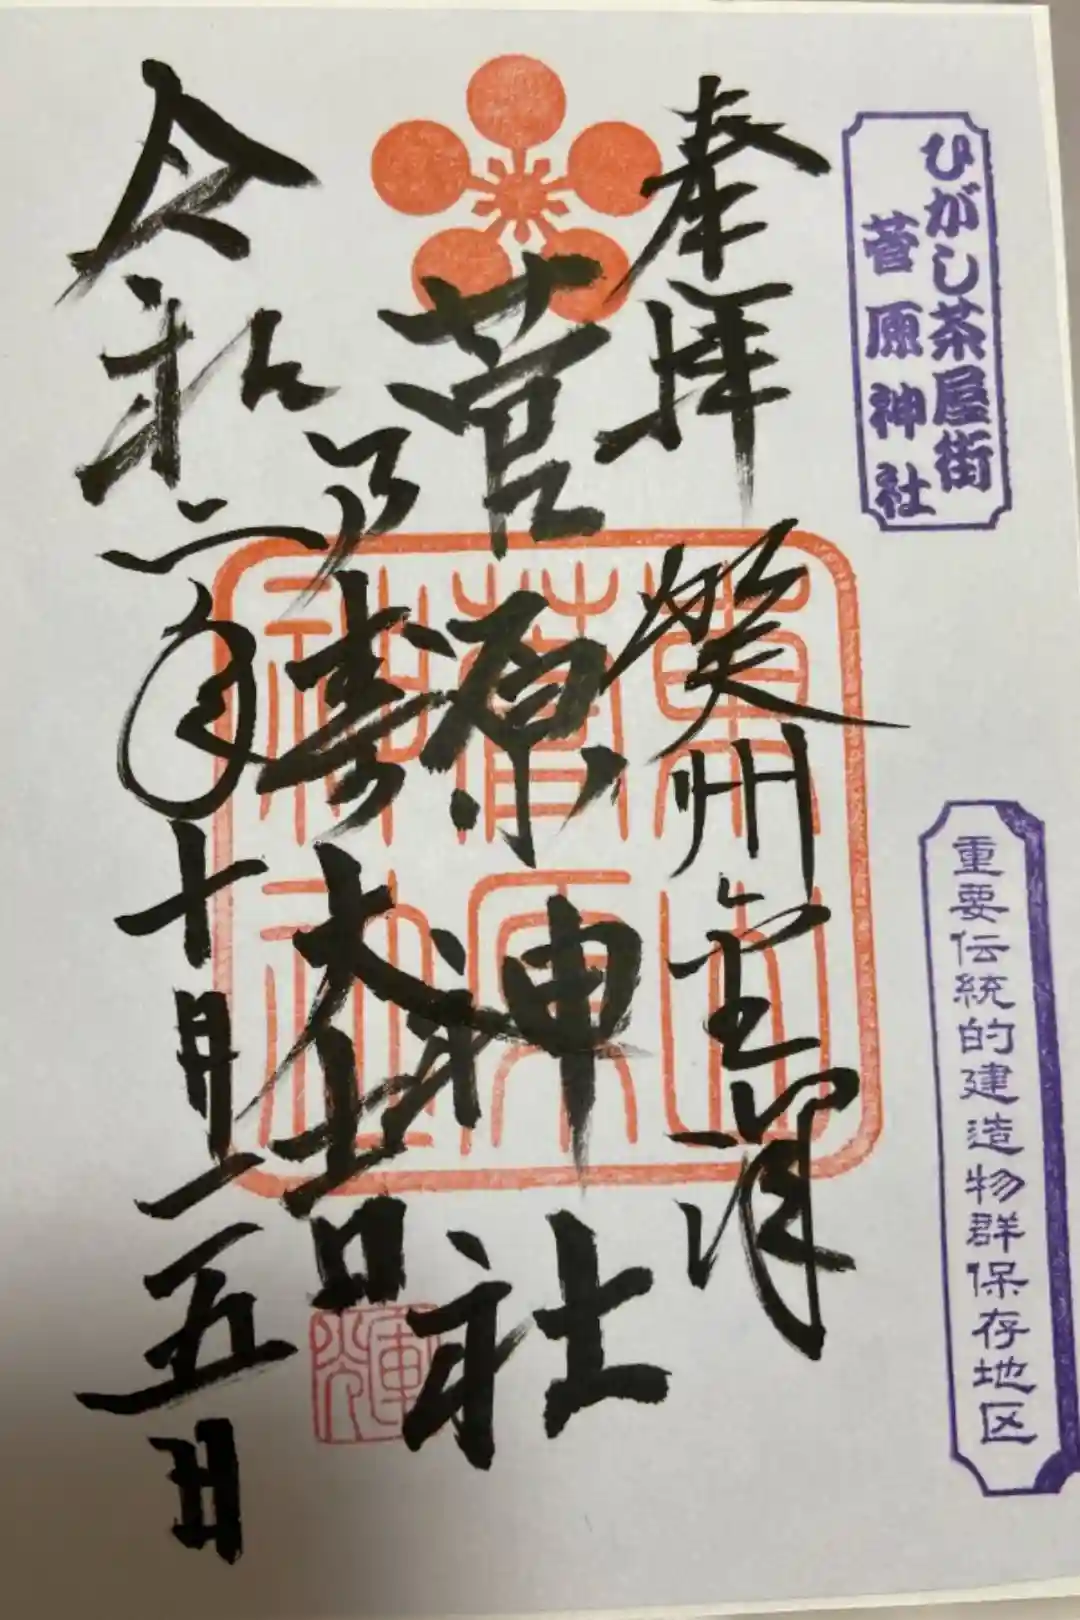 ひがし茶屋街
菅原神社
重要伝統的建造物群保存地区
奉拝
菅原神社
東山
菅原
神社
大吉
輝
令和二年十月二五日